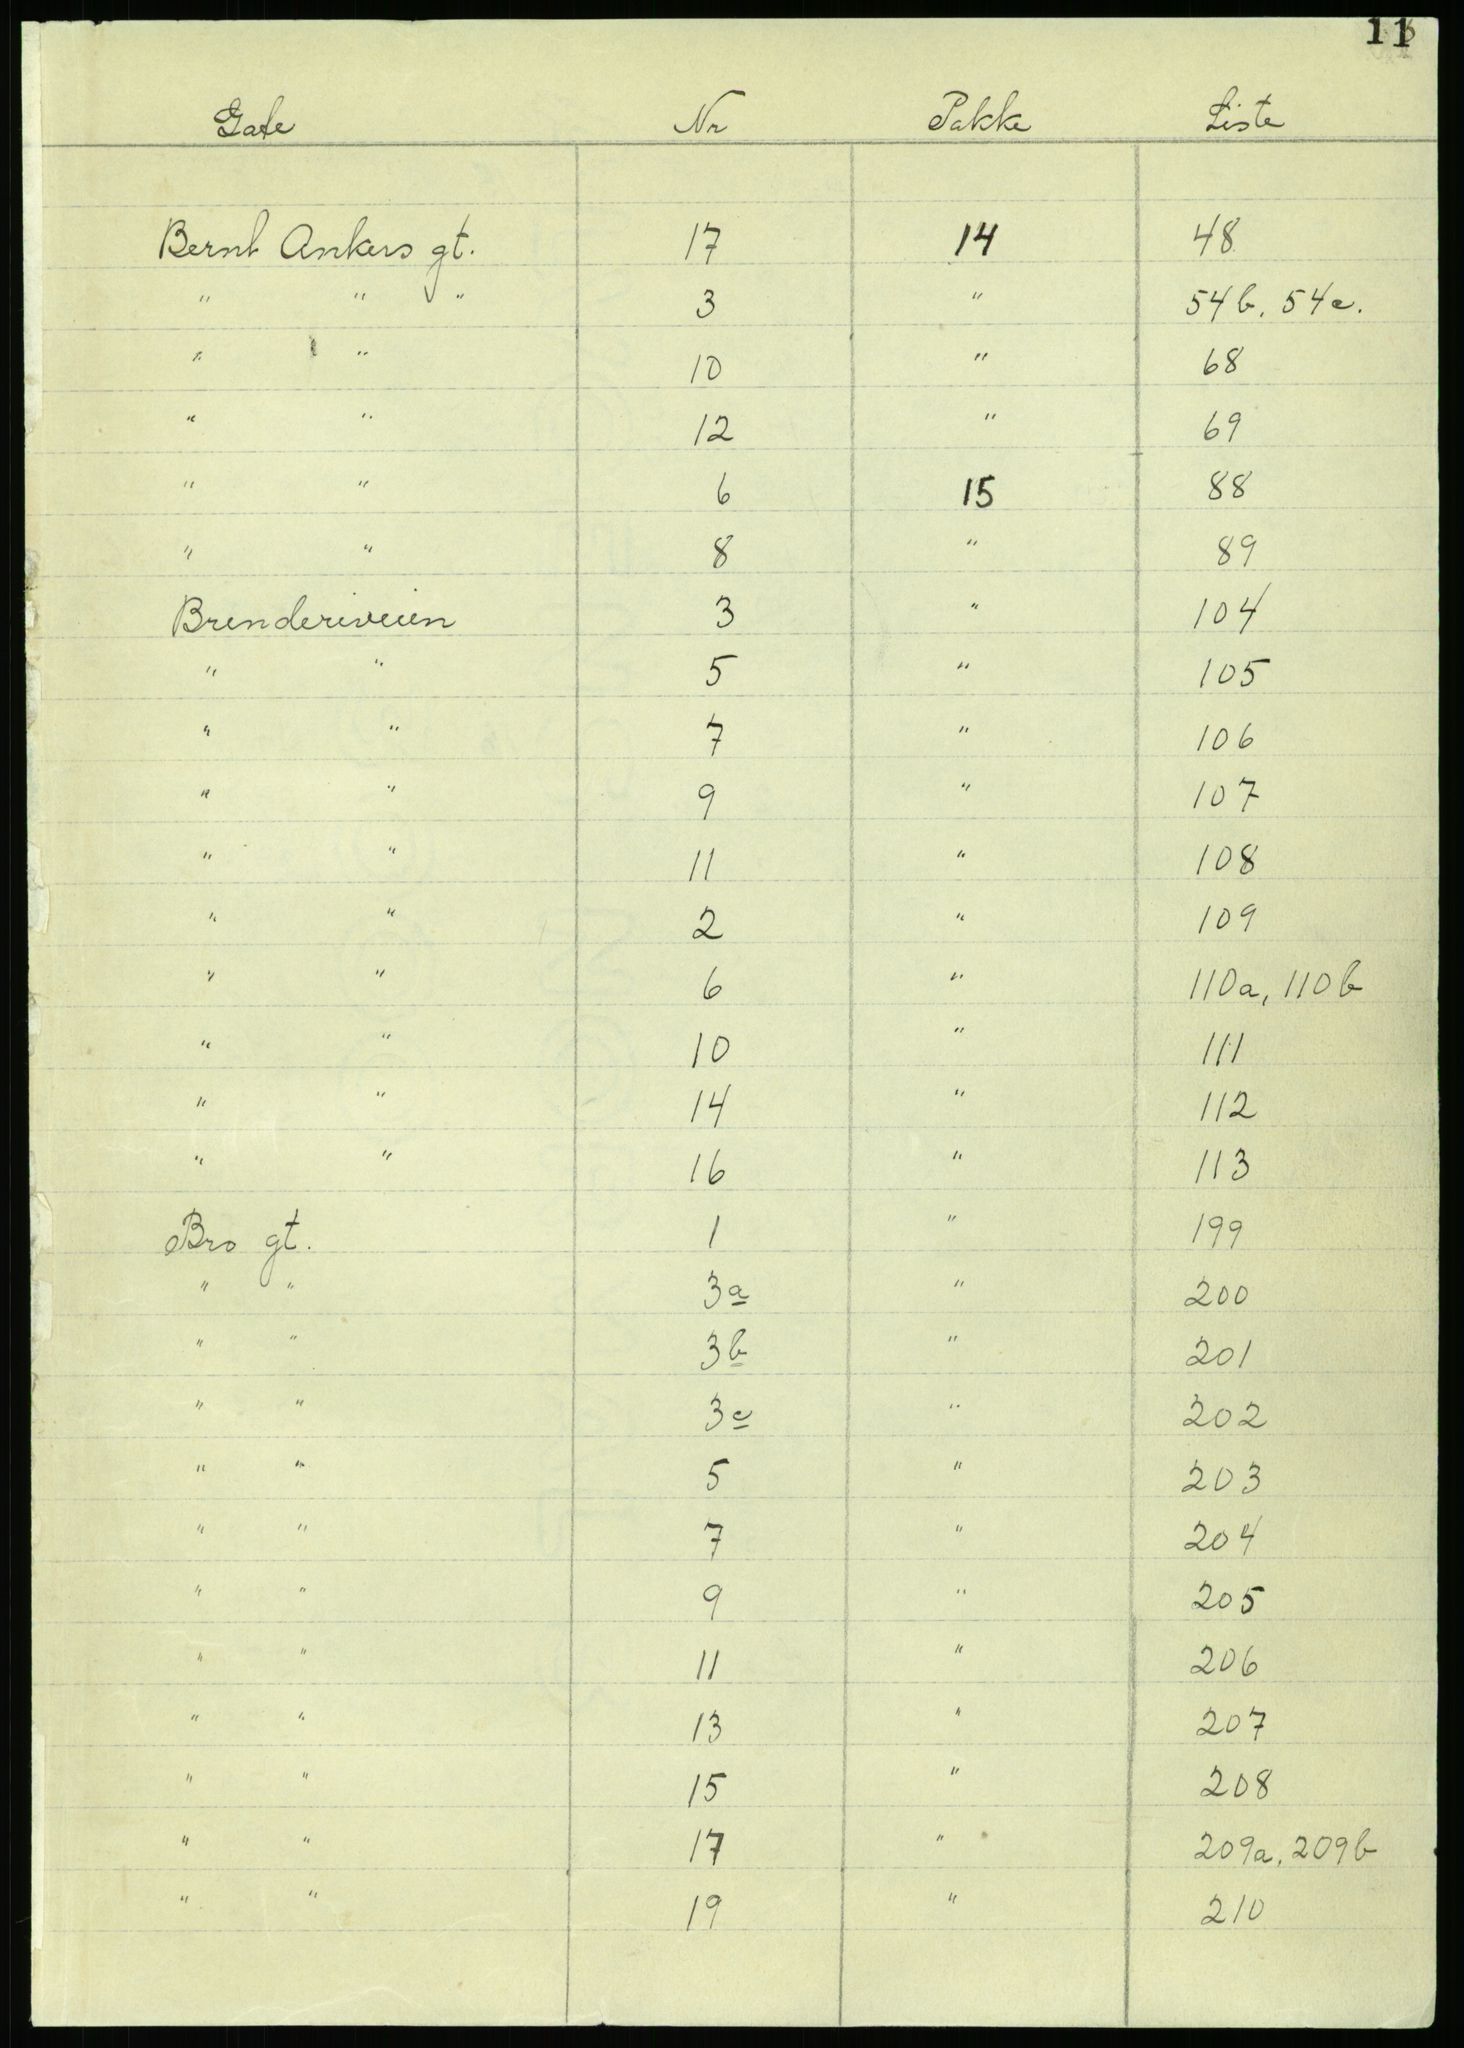 11
Gate Nr Pakke Liste
Bernt Ankers gt. 17 14 48
" " " 3 " 54b, 54c.
" " 10 " 68
" " 12 " 69
" " 6 15 88
" " 8 " 89
Brenderiveien 3 " 104
" " 5 " 105
" " 7 " 106
" " 9 " 107
" " 11 " 108
" " 2 " 109
" " 6 " 110a, 110b
" " 10 " 111
" " 14 " 112
" " 16 " 113
Bro gt. 1 " 199
" " 3a " 200
" " 3b " 201
" " 3c " 202
" " 5 " 203
" " 7 " 204
" " 9 " 205
" " 11 " 206
" " 13 " 207
" " 15 " 208
" " 17 " 209a, 209b
" " 19 " 210